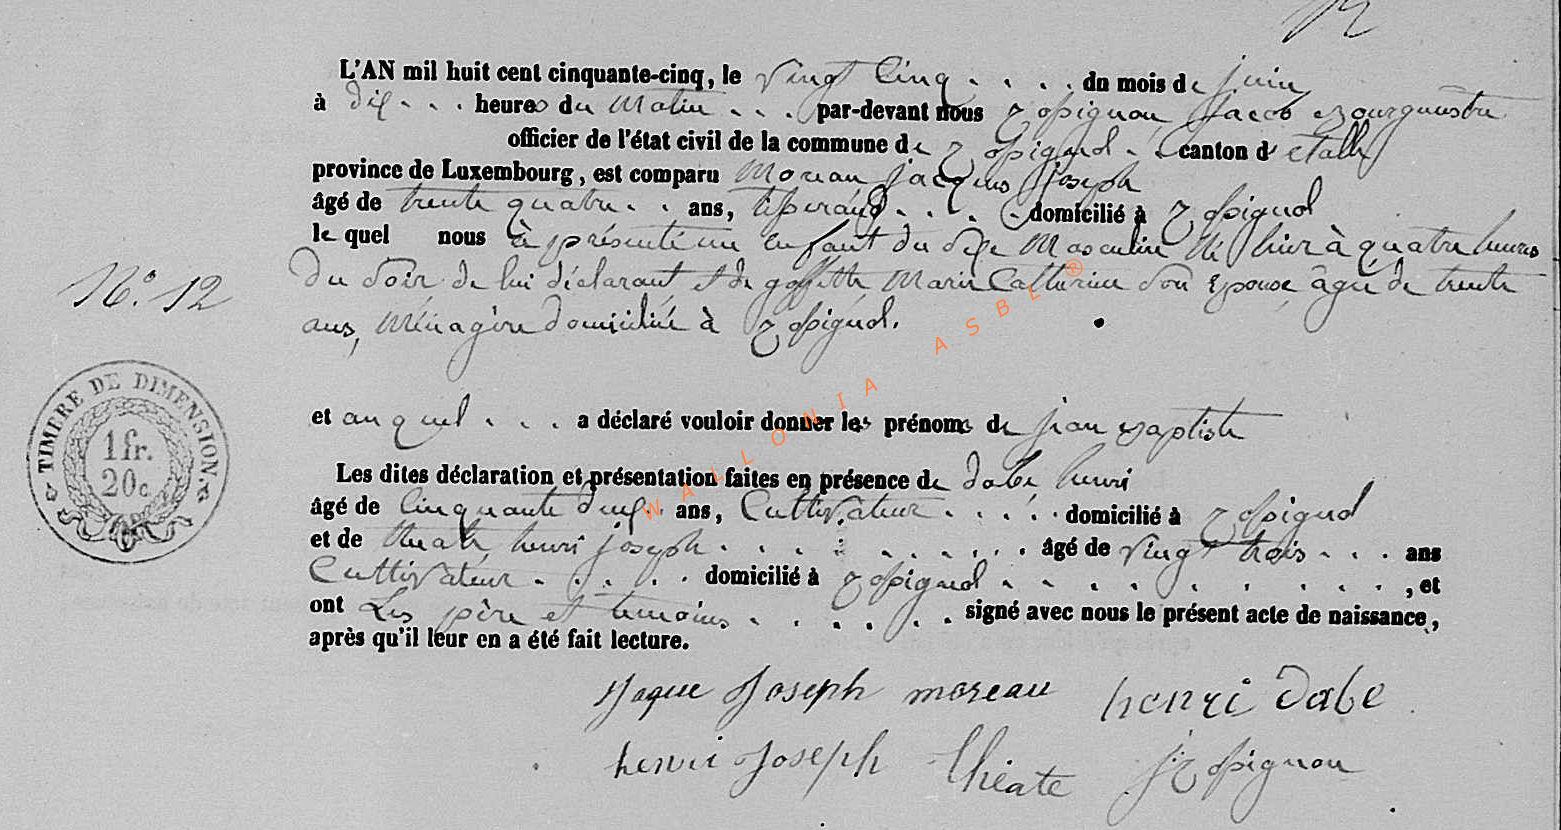 L'AN mil huit cent cinquante-cinq, le vingt cinq . . . . du mois de juin
à dix . . . heures du matin . . . par-devant nous Jacob Bourguestre
officier de l'état civil de la commune de . . canton d' étalle
province de Luxembourg, est comparu Moreau jacques joseph
âgé de trente quatre . . ans, tisserand . . . domicilié à
le quel nous à présenté un enfant du sexe Masculin Né hier à quatre heures
du soir de lui déclarant et de goffette Marie Catherine son Epouse, âgée de trente
ans, Ménagère domiciliée à
N° 12
TIMBRE DE DIMENSION.
1 fr.
20 c
et auquel . . . a déclaré vouloir donner les prénoms de jean Baptiste
Les dites déclaration et présentation faites en présence de dabe henri
âgé de Cinquante deux . ans, Cultivateur . . . . . domicilié à
et de theate henri joseph . . . . . . . . . . âgé de vingt trois . . . ans
Cultivateur . . . . . domicilié à . . . . . . . . , et
ont Les père et temoins . . . . . . . signé avec nous le présent acte de naissance,
après qu'il leur en a été fait lecture.
Jaque Joseph moreau henri dabe
henri Joseph théate
WALLONIA ASBL ®